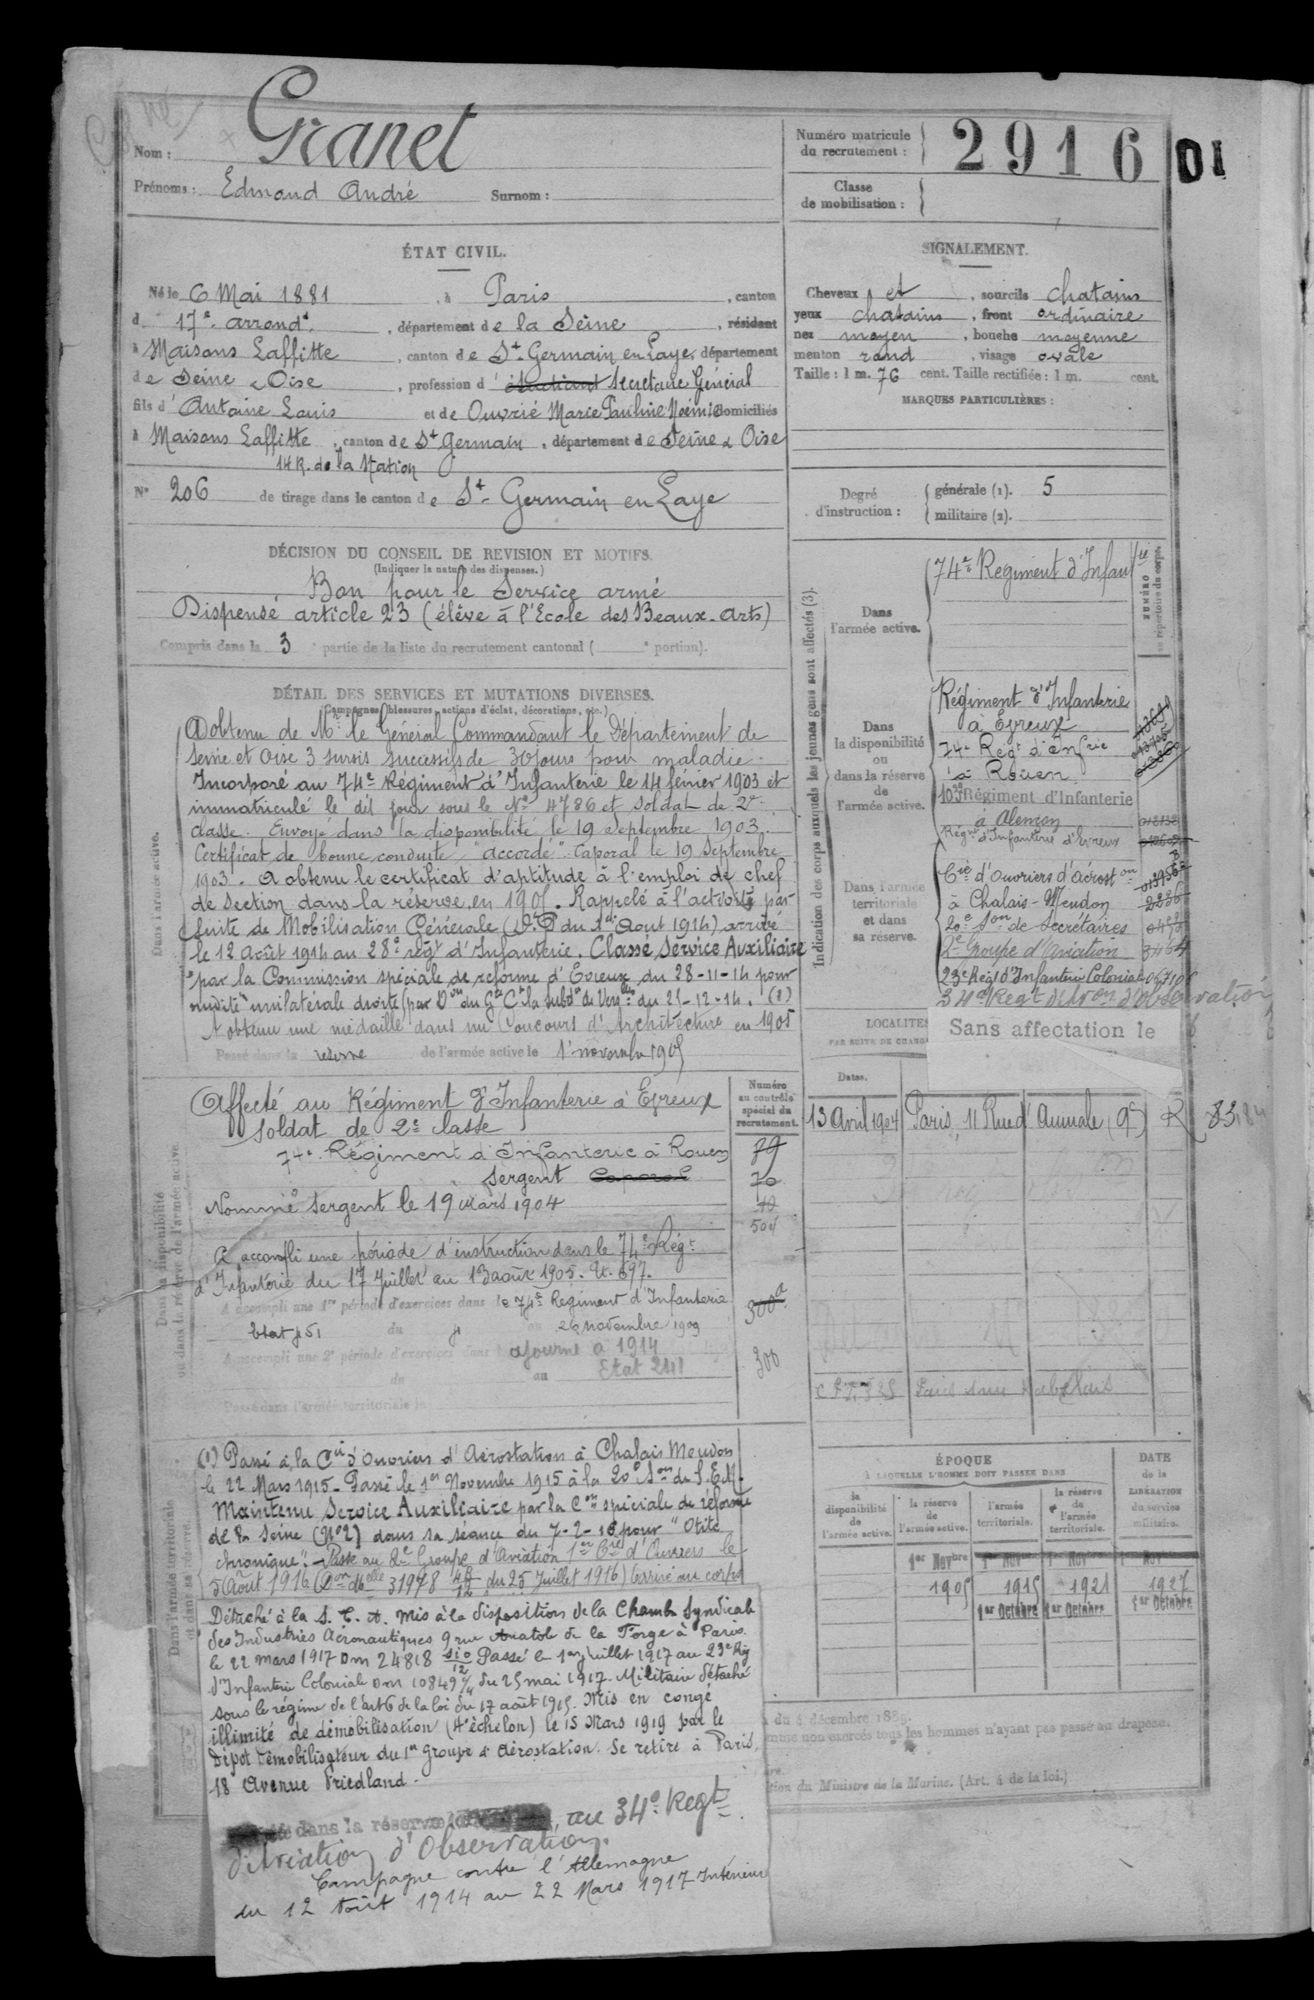 Nom : Granet
Prénoms : Edmond André Surnom :
Numéro matricule du recrutement : 2916 DI
Classe de mobilisation :
ÉTAT CIVIL.
Né le 6 Mai 1881, à Paris, canton
d 17e arrondt, département de la Seine, résidant
à Maisons Laffitte, canton de St Germain en Laye, département
de Seine & Oise, profession d' étudiant Secretaire Général
fils d' Antoine Louis et de Ouvrié Marie Pauline Noémie domiciliés
à Maisons Laffitte, canton de St Germain, département de Seine & Oise
14 R. de la Station
N° 206 de tirage dans le canton de St Germain en Laye
SIGNALEMENT.
Cheveux et, sourcils chatains
yeux chatains, front ordinaire
nez moyen, bouche moyenne
menton rond, visage ovale
Taille : 1 m. 76 cent. Taille rectifiée : 1 m. cent.
MARQUES PARTICULIÈRES :
Degré d'instruction : générale (1). 5
militaire (2).
DÉCISION DU CONSEIL DE REVISION ET MOTIFS.
(Indiquer la nature des dispenses.)
Bon pour le Service armé
Dispensé article 23 (élève à l'Ecole des Beaux-Arts)
Compris dans la 3e partie de la liste du recrutement cantonal ( e portion).
DÉTAIL DES SERVICES ET MUTATIONS DIVERSES.
(Campagnes, blessures, actions d'éclat, décorations, etc.)
Dans l'armée active.
A obtenu de Mr le Général Commandant le Département de
Seine et Oise 3 sursis successifs de 30 jours pour maladie.
Incorporé au 74e Régiment d'Infanterie le 14 février 1903 et
immatriculé le dit jour sous le No 4786 et soldat de 2e
classe. Envoyé dans la disponibilité le 19 septembre 1903.
Certificat de bonne conduite "accordé". Caporal le 19 Septembre
1903. A obtenu le certificat d'aptitude à l'emploi de chef
de section dans la réserve en 1905. Rappelé à l'activité par
suite de Mobilisation Générale (D. P du 1er Aout 1914) arrivé
le 12 Août 1914 au 28e régt d'Infanterie. Classé Service Auxiliaire
par la Commission spéciale de réforme d'Evreux du 28-11-14 pour
surdité unilatérale droite (par Don du Gal Ct la Subdon de Vers du 21-12-14. (1)
A obtenu une médaille dans un Concours d'Architecture en 1905
Passé dans la réserve de l'armée active le 1er novembre 1905
Dans la disponibilité ou dans la réserve de l'armée active.
Numéro au contrôle spécial du recrutement.
Affecté au Régiment d'Infanterie à Evreux
Soldat de 2e classe
74e Régiment d'Infanterie à Rouen 79
Sergent Caporal 70
Nommé Sergent le 19 mars 1904 40
504
A accompli une période d'instruction dans le 74e Régt
d'Infanterie du 17 Juillet au 13 août 1905. Et. 697.
A accompli une 1re période d'exercices dans le 74e Régiment d'Infanterie 300
Etat 51 du 4 au 26 novembre 1909
A accompli une 2e période d'exercices dans ajourné à 1914 300
du au Etat 241
Passé dans l'armée territoriale le
Dans l'armée territoriale et dans sa réserve.
(1) Passé à la Cie d'Ouvriers d'Aérostation à Chalais Meudon
le 22 Mars 1915. Passé le 1er Novembre 1915 à la 20e Son de S.E.M.
Maintenu Service Auxiliaire par la Con spéciale de réforme
de la Seine (No 2) dans sa séance du 7-2-16 pour "Otite
chronique". Passé au 2e Groupe d'Aviation 1ere Cie d'Ouvriers le
5 Août 1916 (Don Melle 31978 du 25 Juillet 1916) Arrivé au corps
Détaché à la S. F. A. mis à la disposition de la Chambre Syndicale
des Industries Aéronautiques 9 rue Anatole de la Forge à Paris.
le 22 mars 1917 Dm 24818 Passé le 1er Juillet 1917 au 23e Rég
d'Infanterie Coloniale Dm 10849 du 25 mai 1917. Militaire détaché
sous le régime de l'art 6 de la loi du 17 août 1915. Mis en congé
illimité de démobilisation (4e échelon) le 15 Mars 1919 par le
Dépôt démobilisateur du 1er Groupe d'Aérostation. Se retire à Paris,
18 Avenue Friedland.
dans la réserve, au 34e Regt
d'Aviation d'Observation.
Campagne contre l'Allemagne
du 12 Août 1914 au 22 Mars 1917 Intérieur
Indication des corps auxquels les jeunes gens sont affectés (3).
NUMÉRO au répertoire du corps.
Dans l'armée active.
74e Régiment d'Infantie
Dans la disponibilité ou dans la réserve de l'armée active.
Régiment d'Infanterie
à Evreux
74e Régt d'Infrie
à Rouen
103e Régiment d'Infanterie
à Alençon
Régt d'Infanterie d'Evreux
Dans l'armée territoriale et dans sa réserve.
Cie d'Ouvriers d'Aéroston
à Chalais-Meudon 2236
20e Son de Secrétaires
2e Groupe d'Aviation
23e Régt d'Infanterie Coloniale
34e Régt d'Avon d'observation
Sans affectation le
LOCALITES
PAR SUITE DE CHANG
Dates.
13 Avril 1904 Paris, 11 Rue d'Aumale (9e) R 83.84
Paris rue Rabelais
ÉPOQUE
À LAQUELLE L'HOMME DOIT PASSER DANS
DATE de la LIBÉRATION du service militaire.
la disponibilité de l'armée active.
la réserve de l'armée active.
l'armée territoriale.
la réserve de l'armée territoriale.
1er Novbre 1er Novbre 1er Novbre 1er Novbre
1905 1915 1921 1927
1er Octobre 1er Octobre 1er Octobre
du 6 décembre 1889.
non exercés tous les hommes n'ayant pas passé au drapeau.
tion du Ministre de la Marine. (Art. 4 de la loi.)